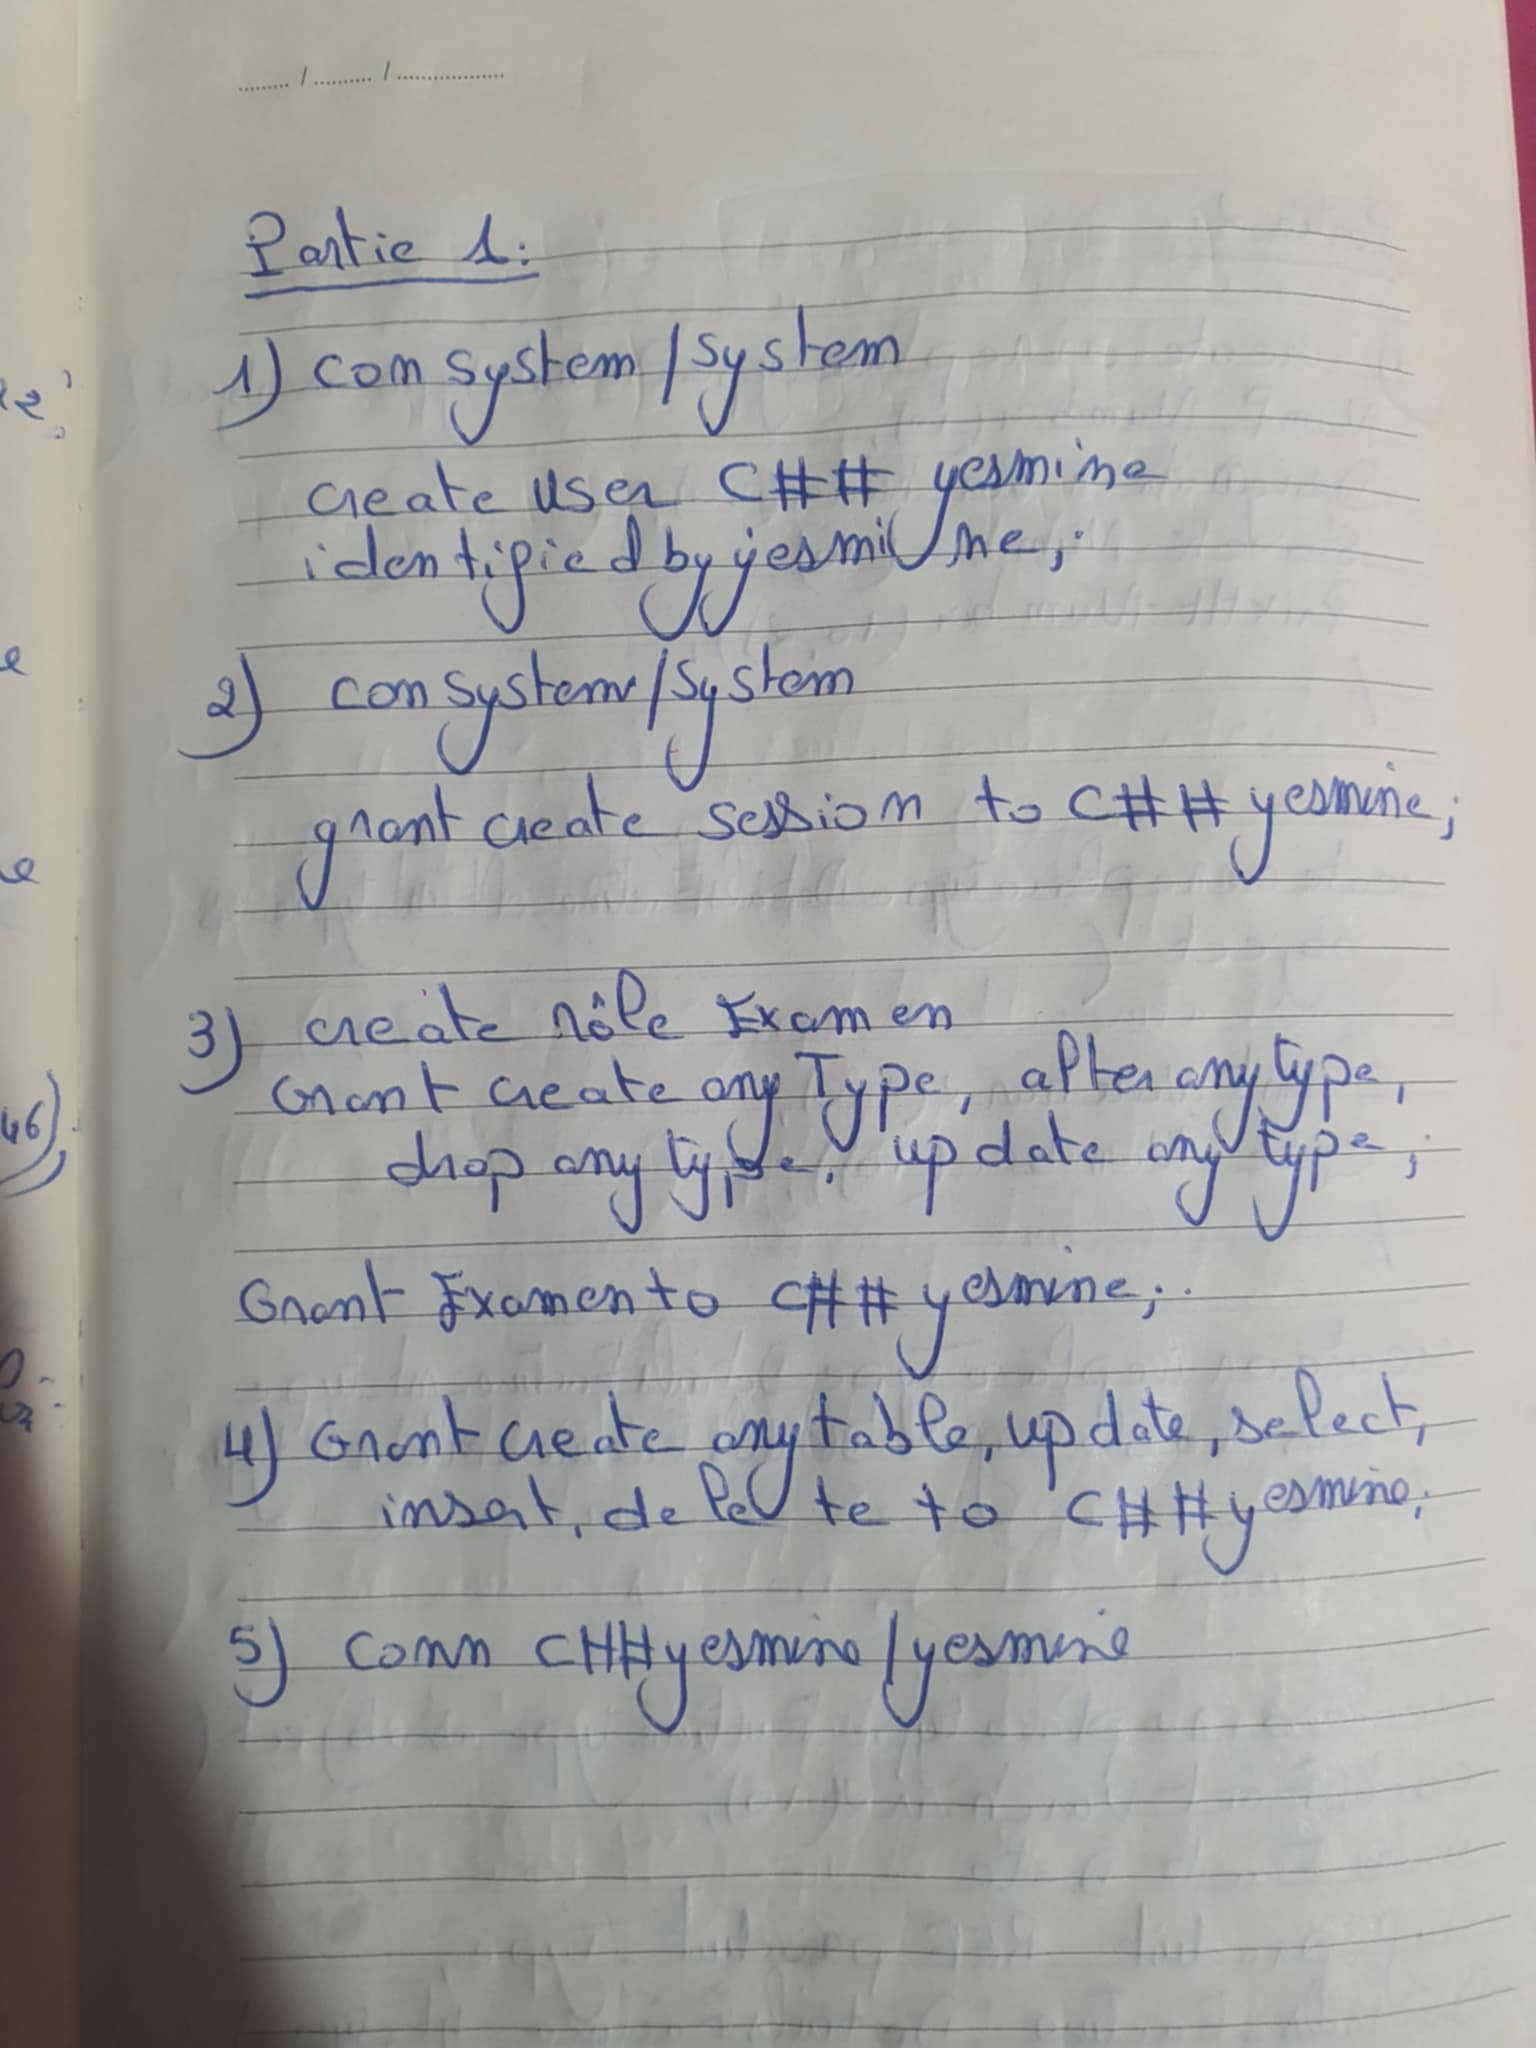 Partie 1:
1) con system / system
create user C## yesmine
identified by yesmine;
2) con system / system
grant create session to C## yesmine;
3) create rôle Examen
Grant create any Type, alter any type,
drop any type, update any type;
Grant Examen to C## yesmine;
4) Grant create any table, update, select,
insert, delete to C## yesmine;
5) conn C##yesmine / yesmine